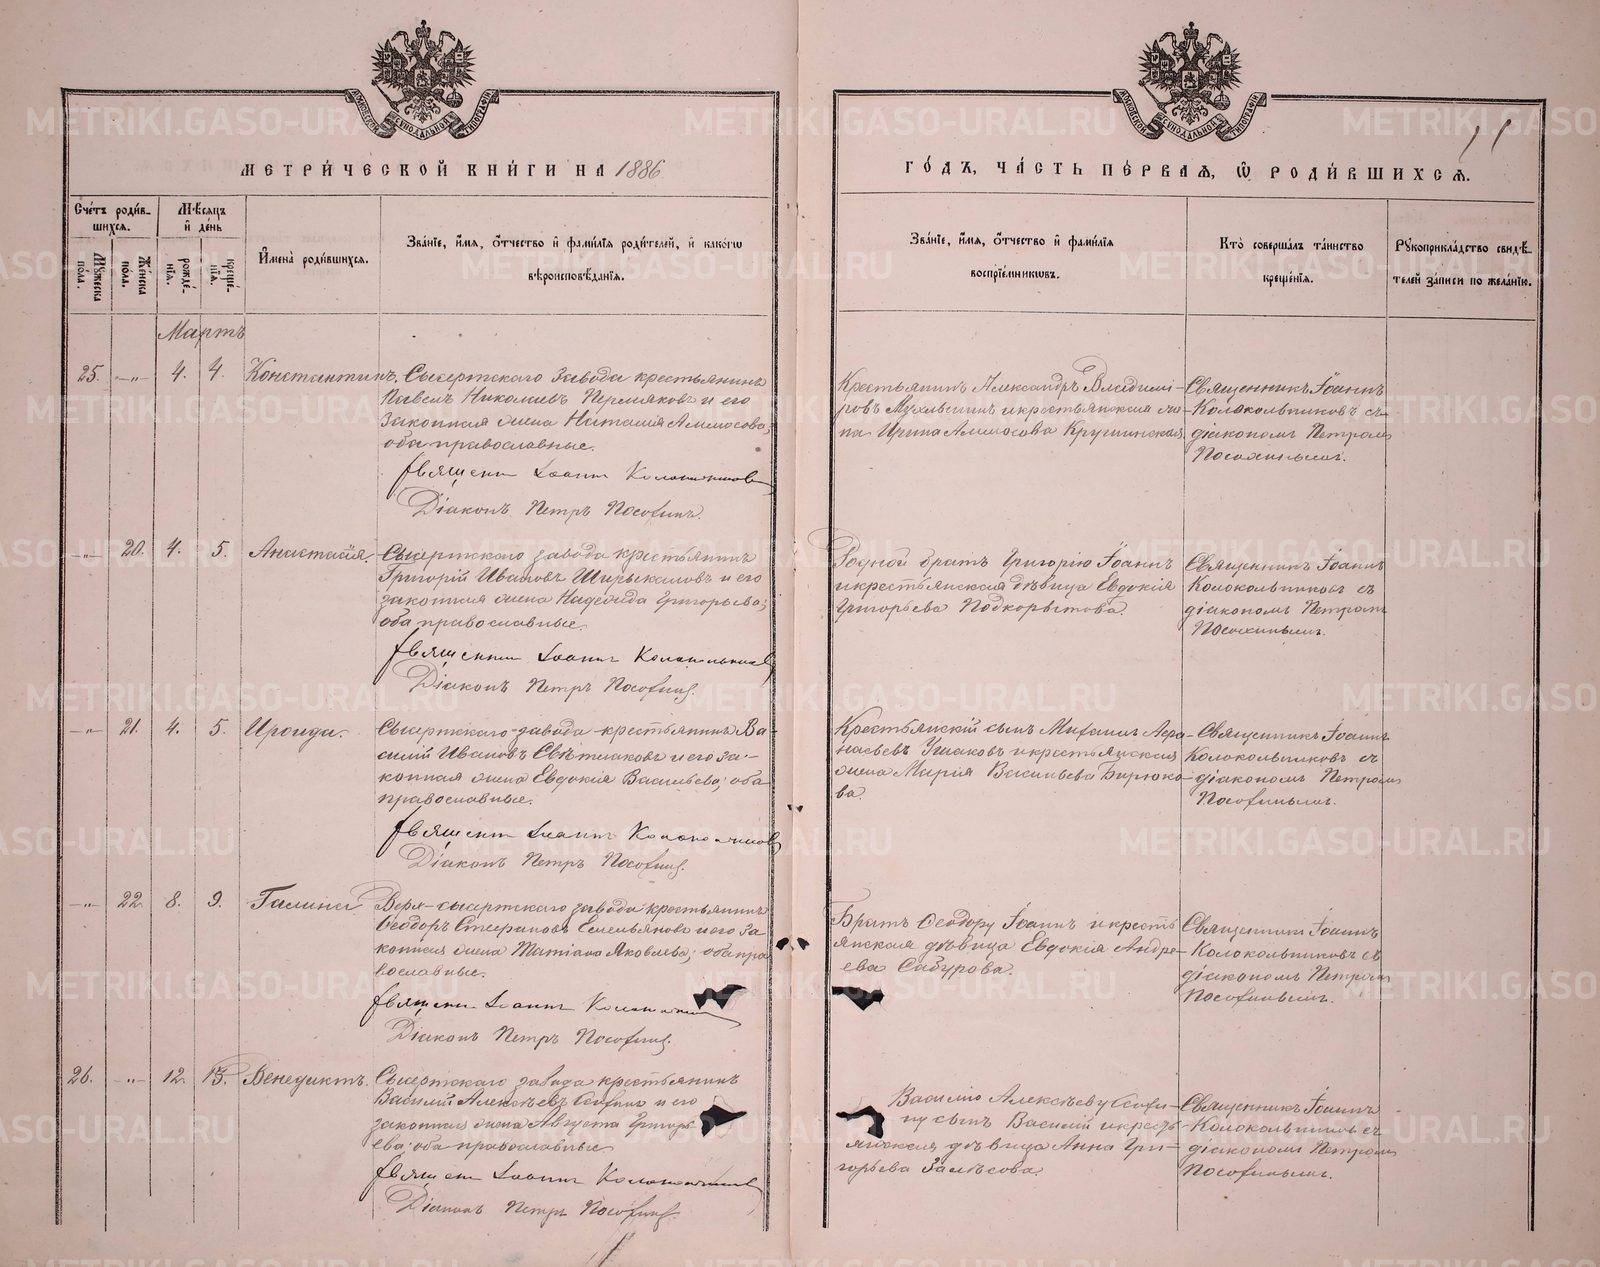 МЕТРИ́ЧЕСКОЙ КНИ́ГИ НА 1886
ГО́ДЪ, ЧА́СТЬ ПЕ́РВАѦ, Ѡ РОДИ́ВШИХСѦ.
11
Сче́тъ роди́в-
шихсѧ.
Мѣ́сѧцъ
и҆ де́нь
Мꙋ́жеска по́ла.
Же́нска по́ла.
рожде́нїѧ.
креще́нїѧ.
И҆мена̀ роди́вшихсѧ.
Зва́нїе, и҆́мѧ, ѻ҆́тчество и҆ фами́лїѧ роди́телей, и҆ како́гѡ
вѣроисповѣ́данїѧ.
Зва́нїе, и҆́мѧ, ѻ҆́тчество и҆ фами́лїѧ
воспрїе́мникѡвъ.
Кто̀ соверша́лъ та́инство
креще́нїѧ.
Рꙋкоприкла́дство свидѣ́-
телей за́писи по жела́нїю.
Мартъ
25. —„— 4. 4. Константинъ. Сысертскаго завода крестьянинъ
Павелъ Николаевъ Пермяковъ и его
законная жена Наталія Аммосова;
оба православные.
Священн Іоаннъ Колокольниковъ
Діаконъ Петръ Посохинъ.
Крестьянинъ Александръ Владимі-
ровъ и крестьянская же-
на Ирина Аммосова
Священникъ Іоаннъ
Колокольниковъ съ
діакономъ Петромъ
Посохинымъ.
—„— 20. 4. 5. Анастасія. Сысертскаго завода крестьянинъ
Григорій Ивановъ Ширыкаловъ и его
законная жена Надежда Григорьева;
оба православные.
Священни Іоаннъ Колокольников
Діаконъ Петръ Посохинъ.
Родной братъ Григорію Іоаннъ
и крестьянская дѣвица Евдокія
Григорьева Подкорытова.
Священникъ Іоаннъ
Колокольниковъ съ
діакономъ Петромъ
Посохинымъ.
—„— 21. 4. 5. Ираида. Сысертскаго завода крестьянинъ Ва-
силій Ивановъ Свѣтлаковъ и его за-
конная жена Евдокія Васильева; оба
православные.
Священн Іоаннъ Колокольников
Діаконъ Петръ Посохинъ.
Крестьянскій сынъ Михаилъ Аѳа-
насьевъ Ушаковъ и крестьянская
жена Марія Васильева Бирюко-
ва.
Священникъ Іоаннъ
Колокольниковъ съ
діакономъ Петромъ
Посохинымъ.
—„— 22. 8. 9. Галина Верх-сысертскаго завода крестьянинъ
Ѳеодоръ Стефановъ Емельяновъ и его за-
конная жена Татіана Яковлева; оба пра-
вославные.
Священн Іоаннъ
Діаконъ Петръ Посохинъ.
Братъ Ѳеодору Іоаннъ и кресть-
янская дѣвица Евдокія Андре-
ева Сабурова.
Священникъ Іоаннъ
Колокольниковъ съ
діакономъ Петромъ
Посохинымъ.
26. —„— 12. 13. Венедиктъ. Сысертскаго завода крестьянинъ
Василій Алексѣевъ и его
законная жена Августа Григорь-
ева; оба православные
Священн Іоаннъ Колокольников
Діаконъ Петръ Посохинъ.
Василію Алексѣеву
сынъ Василій и кресть-
янская дѣвица Анна Гри-
горьева Залѣсова.
Священникъ Іоаннъ
Колокольниковъ съ
діакономъ Петромъ
Посохинымъ.
METRIKI.GASO-URAL.RU